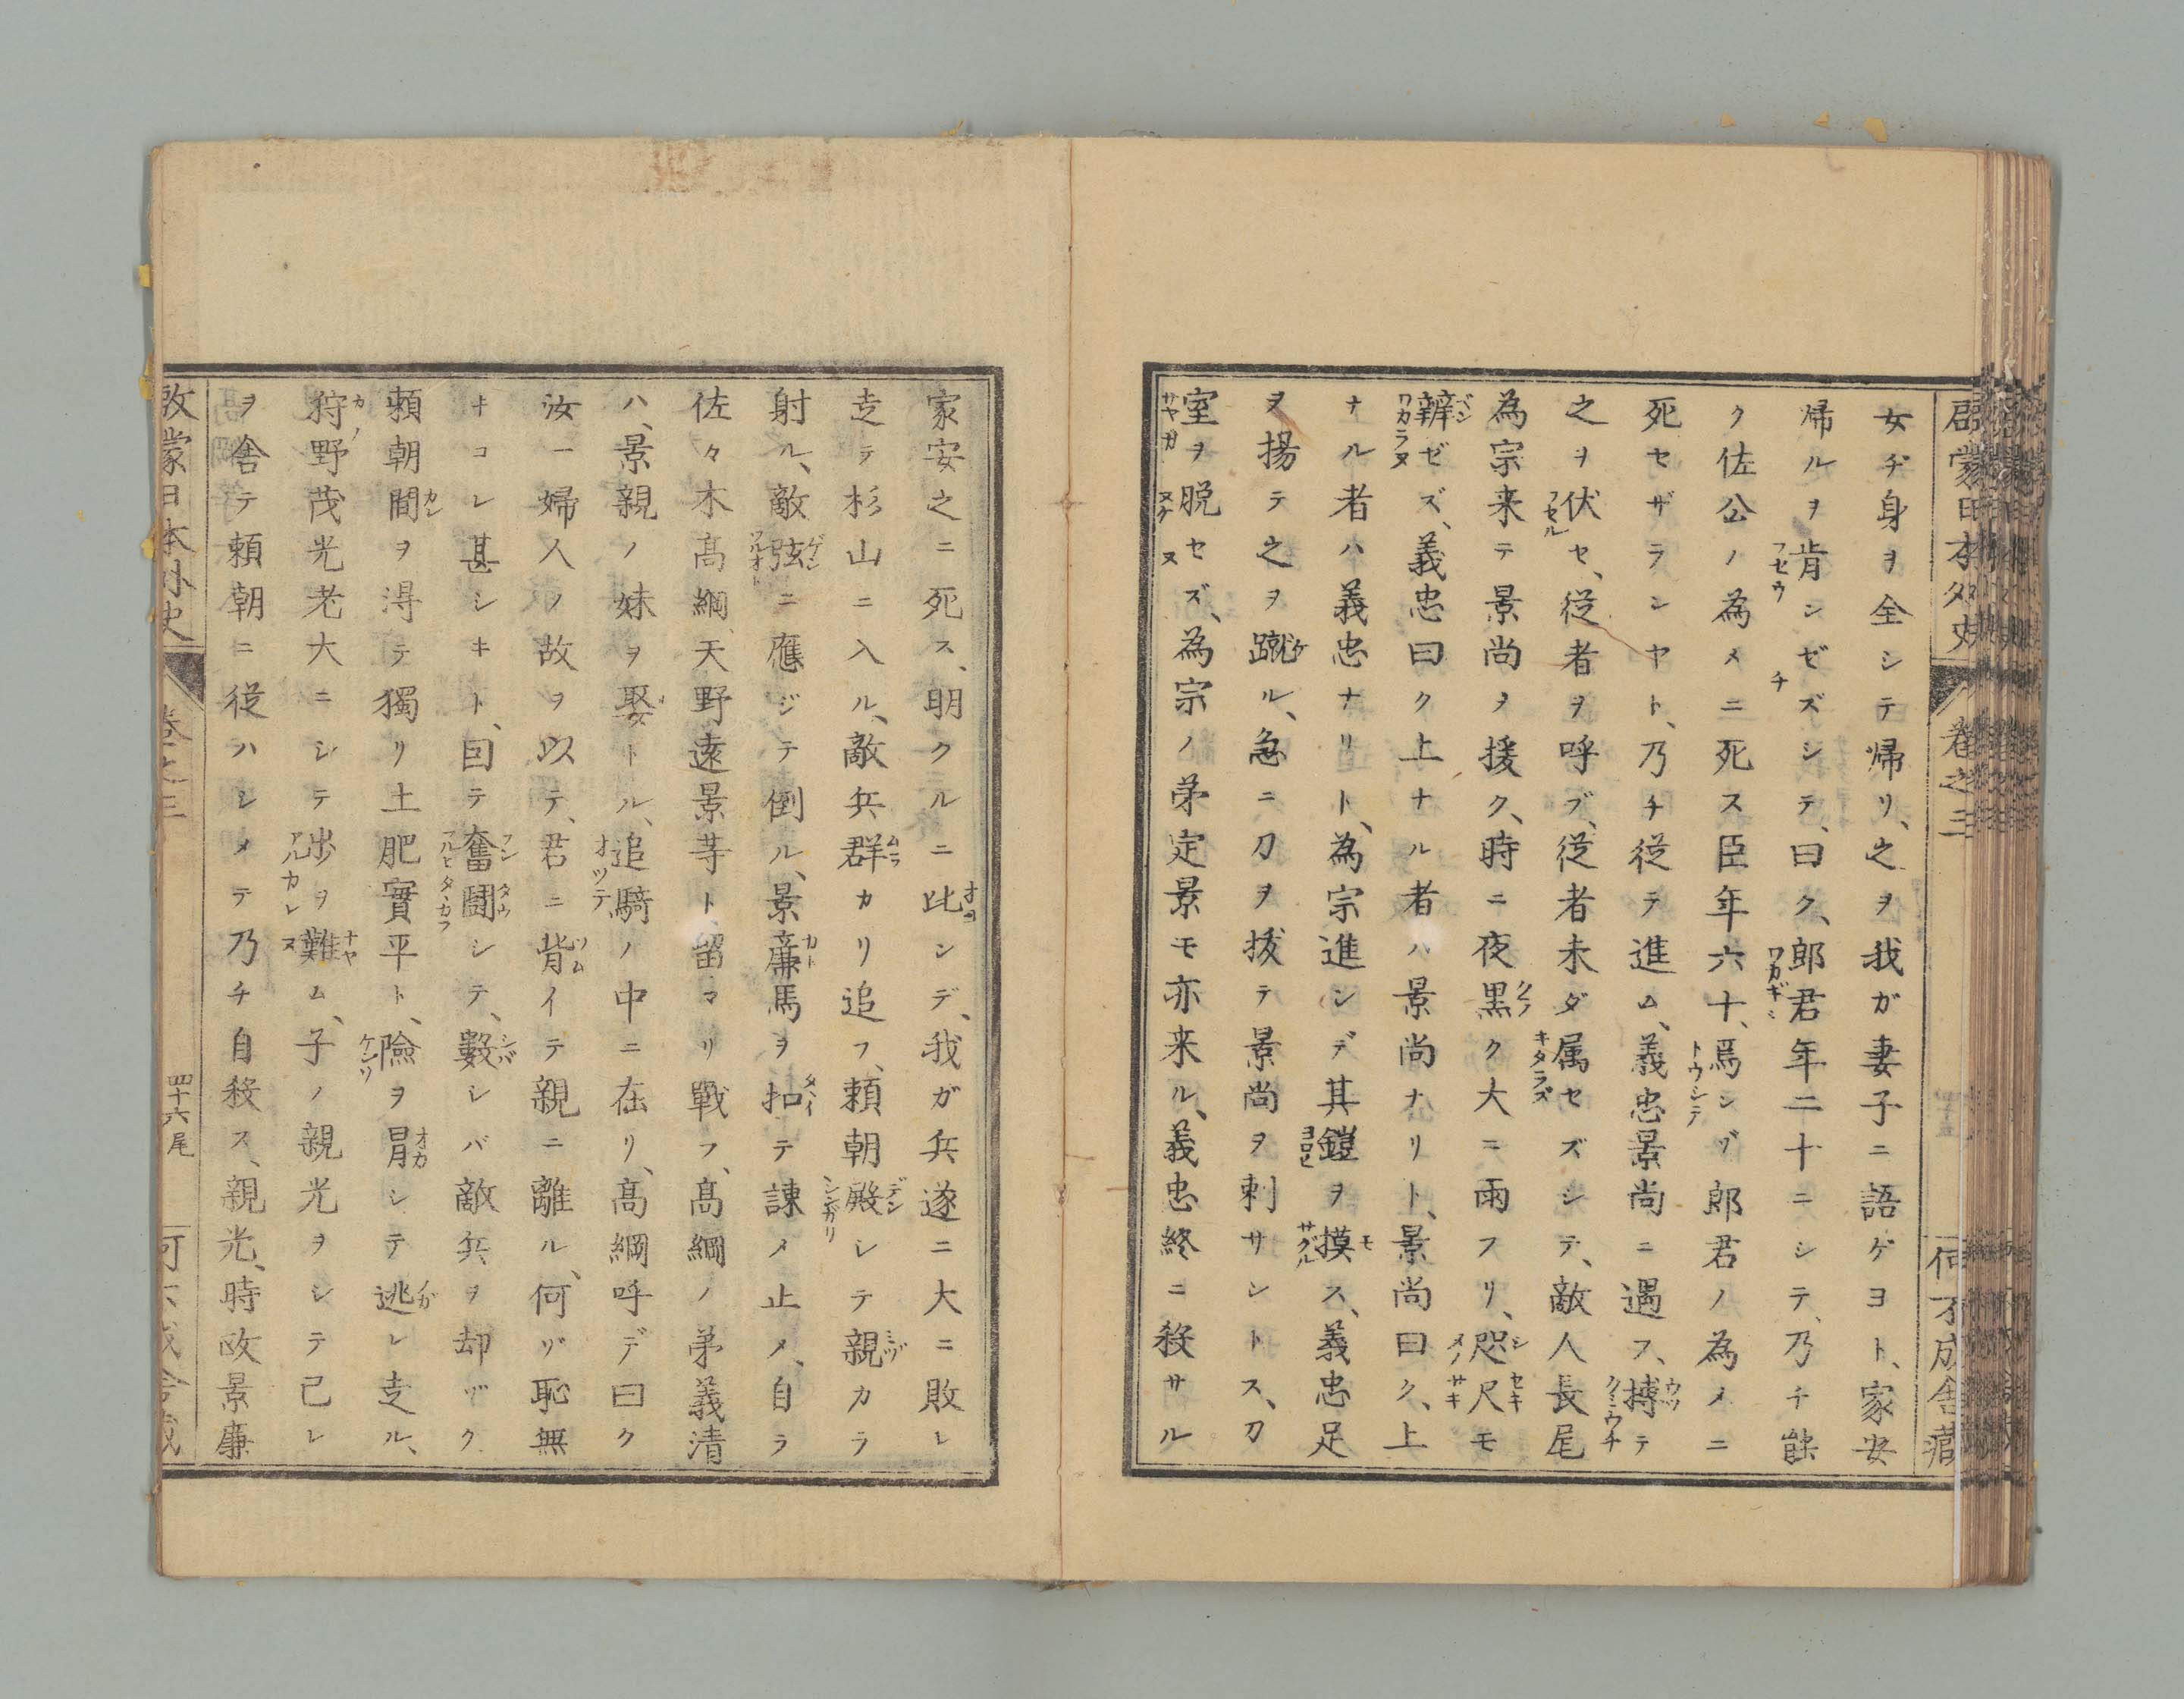 啓蒙日本外史 巻之三 何不成舎蔵
女ヂ身ヲ全シテ帰リ、之ヲ我ガ妻子ニ語ゲヨト、家安
帰ルヲ肯ンゼズシテ、曰ク、郎君年二十ニシテ、乃チ能
ク佐公ノ為メニ死ス臣年六十、焉ンゾ郎君ノ為メニ
死セザランヤト、乃チ従テ進ム、義忠景尚ニ遇フ、搏テ
之ヲ伏セ、従者ヲ呼ブ、従者未ダ属セズシテ、敵人長尾
為宗来テ景尚ヲ援ク、時ニ夜黒ク大ニ雨フリ、咫尺モ
辨ゼズ、義忠曰ク上ナル者ハ景尚ナリト、景尚曰ク、上
ナル者ハ義忠ナリト、為宗進ンデ其鎧ヲ摸ス、義忠足
ヲ揚テ之ヲ蹴ル、急ニ刀ヲ抜テ景尚ヲ刺サントス、刀
室ヲ脱セズ、為宗ノ弟定景モ亦来ル、義忠終ニ殺サル
家安之ニ死ス、明クルニ比ンデ、我ガ兵遂ニ大ニ敗レ
走テ杉山ニ入ル、敵兵群カリ追フ、頼朝殿シテ親カラ
射ル、敵弦ニ應ジテ倒ル、景廉馬ヲ扣テ諫メ止メ、自ラ
佐々木高綱、天野遠景等ト、留マリ戦フ、高綱ノ弟義清
ハ、景親ノ妹ヲ娶トル、追騎ノ中ニ在リ、高綱呼デ曰ク
汝一婦人ノ故ヲ以テ、君ニ背イテ親ニ離ル、何ゾ恥無
キコレ甚シキト、因テ奮闘シテ、數シバ敵兵ヲ却ゾク
頼朝間ヲ得テ獨リ土肥實平ト、險ヲ冐シテ逃レ走ル、
狩野茂光老大ニシテ歩ヲ難ム、子ノ親光ヲシテ己レ
ヲ舎テ頼朝ニ従ハシメテ乃チ自殺ス、親光、時政景廉
啓蒙日本外史 巻之三 四十六尾 何不成舎蔵